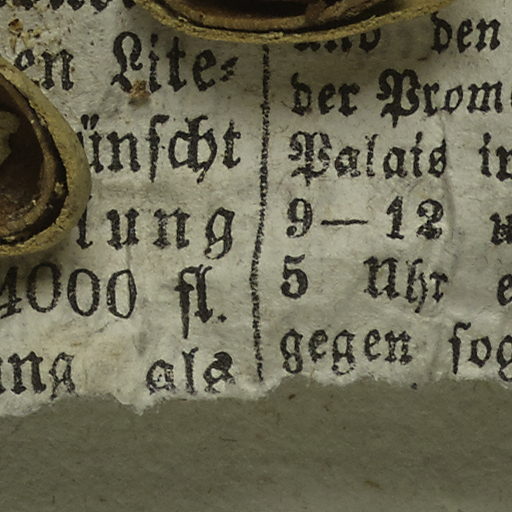 en Lite-
ünscht
lung
4000 fl.
ung als
und den
der Prom
Palais in
9—12 u
5 Uhr e
gegen sog